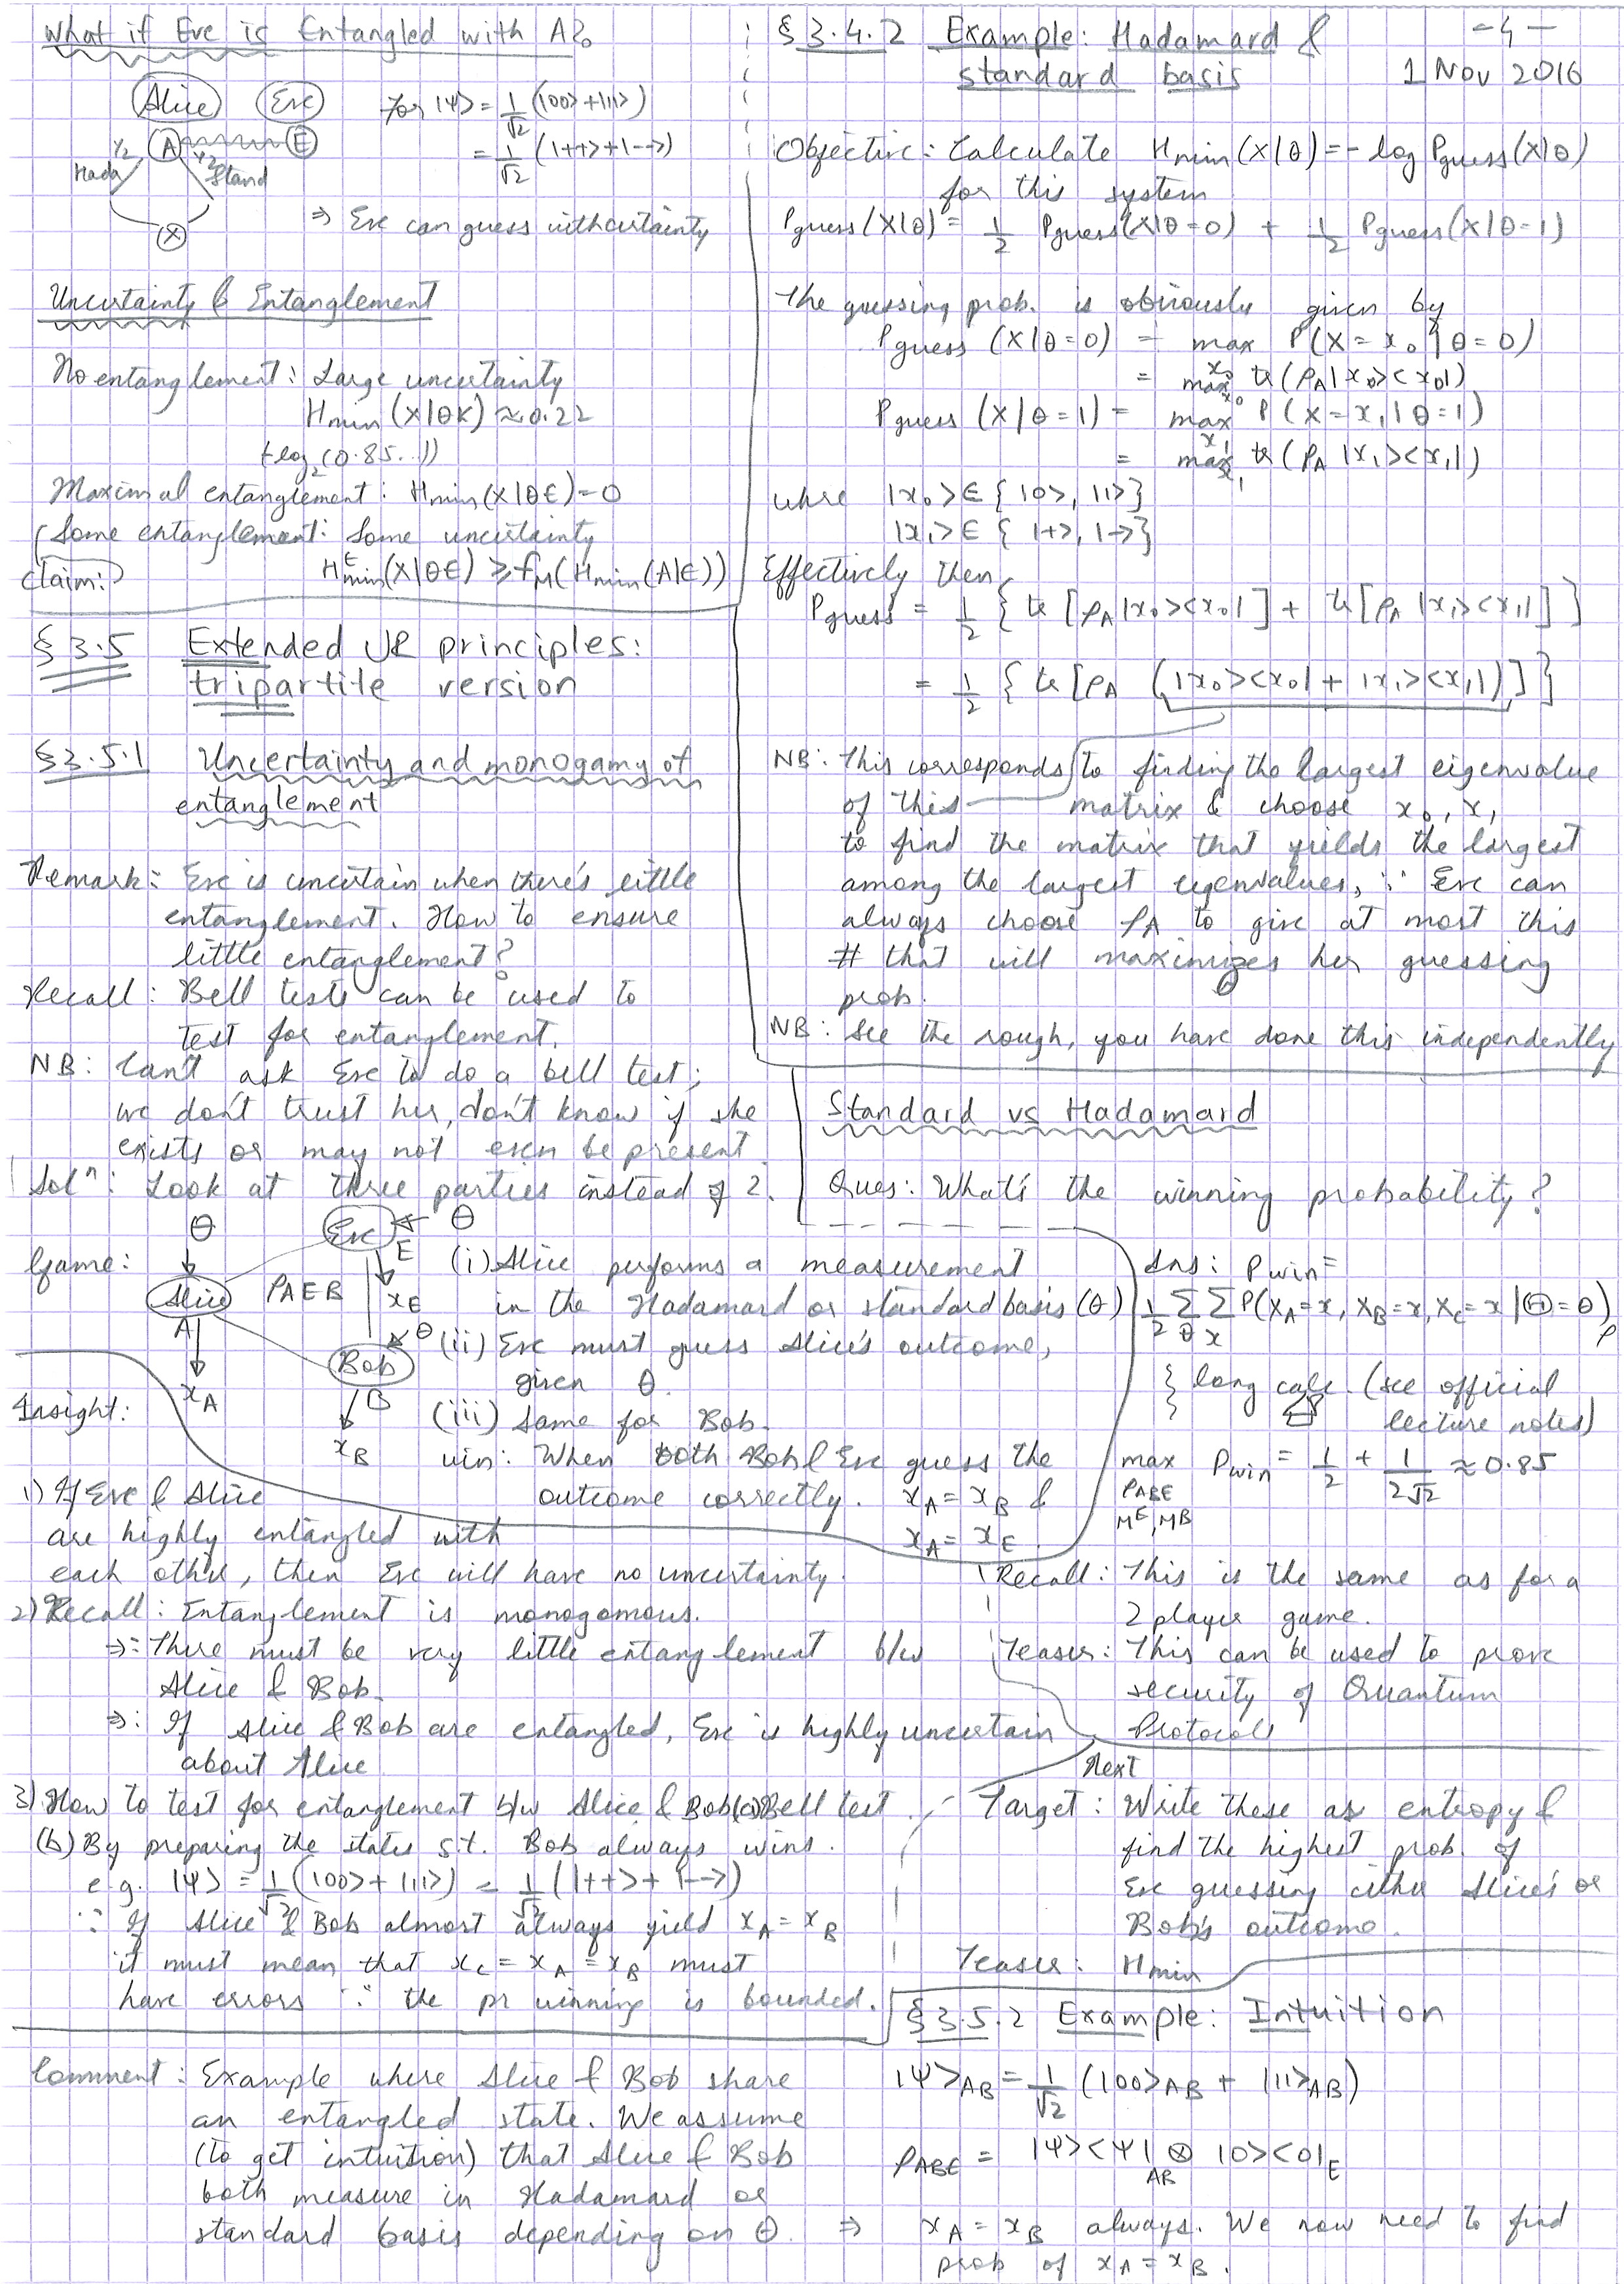 What if Eve is Entangled with A?
Alice Eve
for |ψ> = 1/√2 (|00>+|11>)
= 1/√2 (|++>+|-->)
A E
1/2 1/2
Hada Stand
X
⇒ Eve can guess with certainty
Uncertainty & Entanglement
No entanglement: Large uncertainty
Hmin (X|ΘK) ≈ 0.22
(-log₂(0.85..))
Maximal entanglement: Hmin(X|ΘE)=0
(Some entanglement: Some uncertainty
Claim:? H^E min(X|ΘE) ≥ f_M(Hmin(A|E))
§ 3.5 Extended UR principles:
tripartite version
§3.5.1 Uncertainty and monogamy of
entanglement
Remark: Eve is uncertain when there's little
entanglement. How to ensure
little entanglement?
Recall: Bell tests can be used to
test for entanglement.
NB: Can't ask Eve to do a bell test;
we don't trust her, don't know if she
exists or may not even be present
Solⁿ: Look at three parties instead of 2.
Game:
θ Eve θ
E
Alice ρAEB x_E
A θ
Bob
x_A B
x_B
(i) Alice performs a measurement
in the Hadamard or standard basis (θ)
(ii) Eve must guess Alice's outcome,
given θ.
(iii) Same for Bob.
win: When both Bob & Eve guess the
outcome correctly. x_A = x_B &
x_A = x_E
Insight:
1) If Eve & Alice
are highly entangled with
each other, then Eve will have no uncertainty.
2) Recall: Entanglement is monogomous.
⇒: There must be very little entanglement b/w
Alice & Bob.
⇒: If Alice & Bob are entangled, Eve is highly uncertain
about Alice
3) How to test for entanglement b/w Alice & Bob (a) Bell test.
(b) By preparing the states s.t. Bob always wins.
e.g. |ψ> = 1/√2 (|00>+|11>) = 1/√2 (|++>+|-->)
∵ If Alice & Bob almost always yield x_A = x_B
it must mean that x_C = x_A = x_B must
have errors ∵ the pr winning is bounded.
Comment: Example where Alice & Bob share
an entangled state. We assume
(to get intuition) that Alice & Bob
both measure in Hadamard or
standard basis depending on θ.
§3.4.2 Example: Hadamard &
standard basis
-4-
1 Nov 2016
Objective: Calculate Hmin(X|Θ) = - log Pguess(X|Θ)
for this system
Pguess(X|Θ) = 1/2 Pguess(X|Θ=0) + 1/2 Pguess(X|Θ=1)
The guessing prob. is obviously given by
Pguess (X|Θ=0) = max x₀ P(X = x₀|Θ=0)
= max x₀ tr(ρA|x₀><x₀|)
Pguess (X|Θ=1) = max x₁ P(X=x₁|Θ=1)
= max x₁ tr(ρA|x₁><x₁|)
where |x₀> ∈ {|0>, |1>}
|x₁> ∈ {|+>, |->}
Effectively then
Pguess = 1/2 { tr [ρA|x₀><x₀|] + tr[ρA|x₁><x₁|] }
= 1/2 { tr [ρA (|x₀><x₀| + |x₁><x₁|)] }
NB: This corresponds to finding the largest eigenvalue
of this matrix & choose x₀, x₁
to find the matrix that yields the largest
among the largest eigenvalues, ∵ Eve can
always choose ρA to give at most this
# that will maximizes her guessing
prob.
NB: See the rough, you have done this independently
Standard vs Hadamard
Ques: What's the winning probability?
Ans: Pwin =
1/2 Σ_θ Σ_x P(X_A=x, X_B=x, X_C=x|Θ=θ)ρ
long calc. (see official
lecture notes)
max Pwin = 1/2 + 1/(2√2) ≈ 0.85
ρABE
M^E, M^B
Recall: This is the same as for a
2 player game.
Teaser: This can be used to prove
security of Quantum
Protocols
Next
Target: Write these as entropy &
find the highest prob. of
Eve guessing either Alice's or
Bob's outcome.
Teaser: Hmin
§3.5.2 Example: Intuition
|ψ>AB = 1/√2 (|00>AB + |11>AB)
ρABE = |ψ><ψ|AB ⊗ |0><0|E
⇒ x_A = x_B always. We now need to find
prob of x_A = x_B.